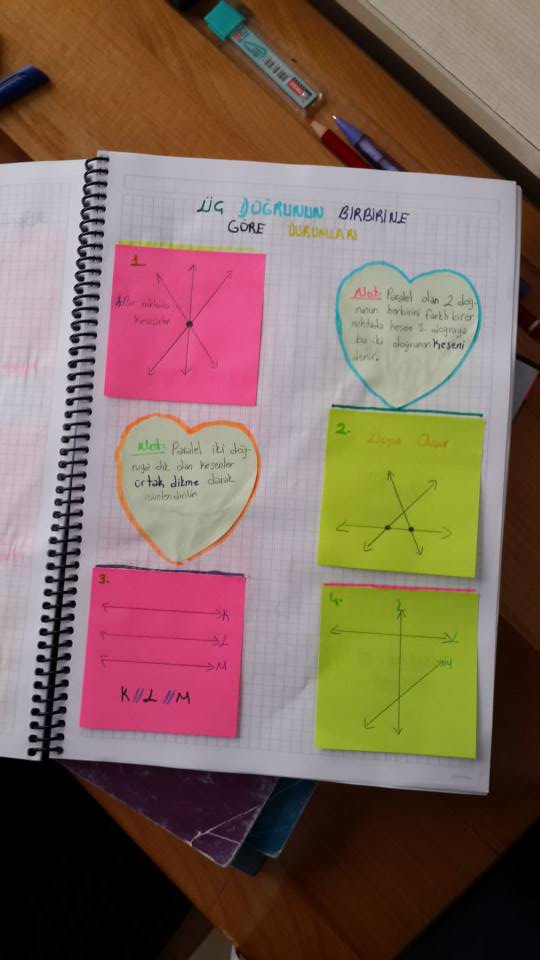 ÜÇ DOĞRUNUN BİRBİRİNE
GÖRE DURUMLARI
1.
Bir noktada
kesişirler
Not: Paralel olan 2 doğ-
runun herbirini farklı birer
noktada kesen 3. doğruya
bu iki doğrunun keseni
denir.
Not: Paralel iki doğ-
ruya dik olan kesenler
ortak dikme olarak
isimlendirilir
2. Üçgen Oluşur
3.
K
L
M
K//L//M
4.
L
M